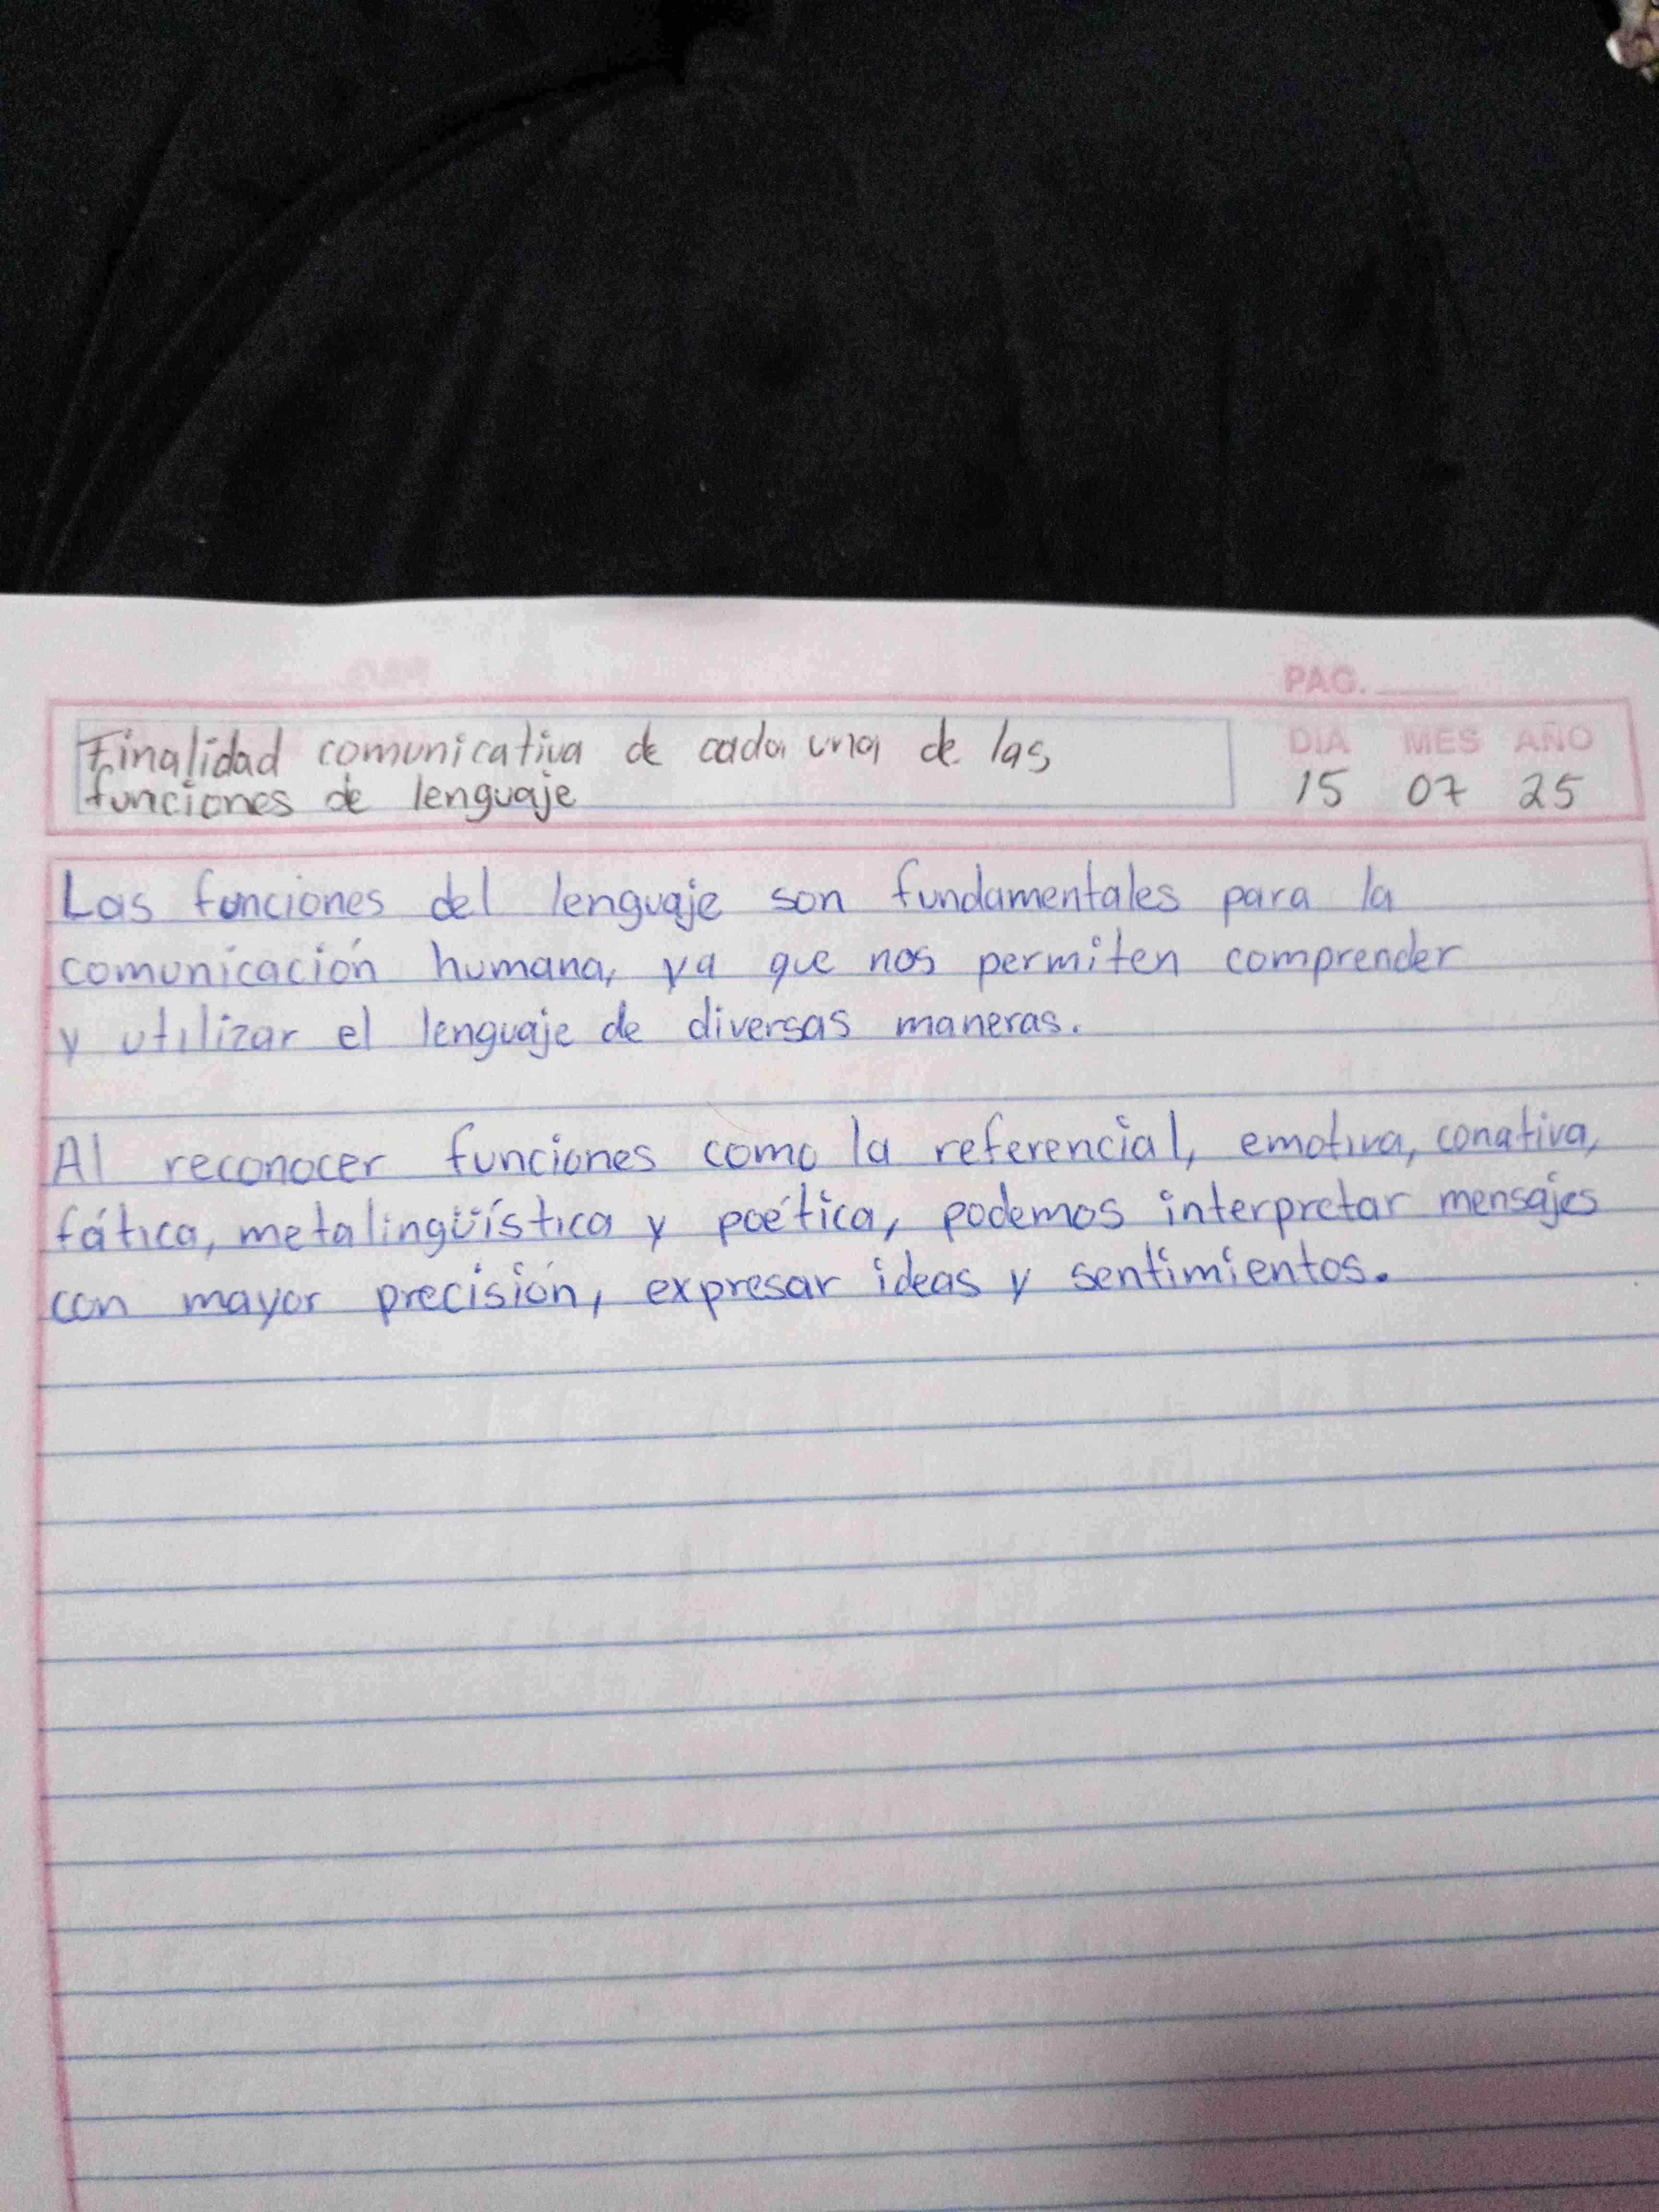 PAG.
Finalidad comunicativa de cada una de las
funciones de lenguaje
DIA MES AÑO
15 07 25
Las funciones del lenguaje son fundamentales para la
comunicación humana, ya que nos permiten comprender
y utilizar el lenguaje de diversas maneras.
Al reconocer funciones como la referencial, emotiva, conativa,
fática, metalingüística y poética, podemos interpretar mensajes
con mayor precisión, expresar ideas y sentimientos.